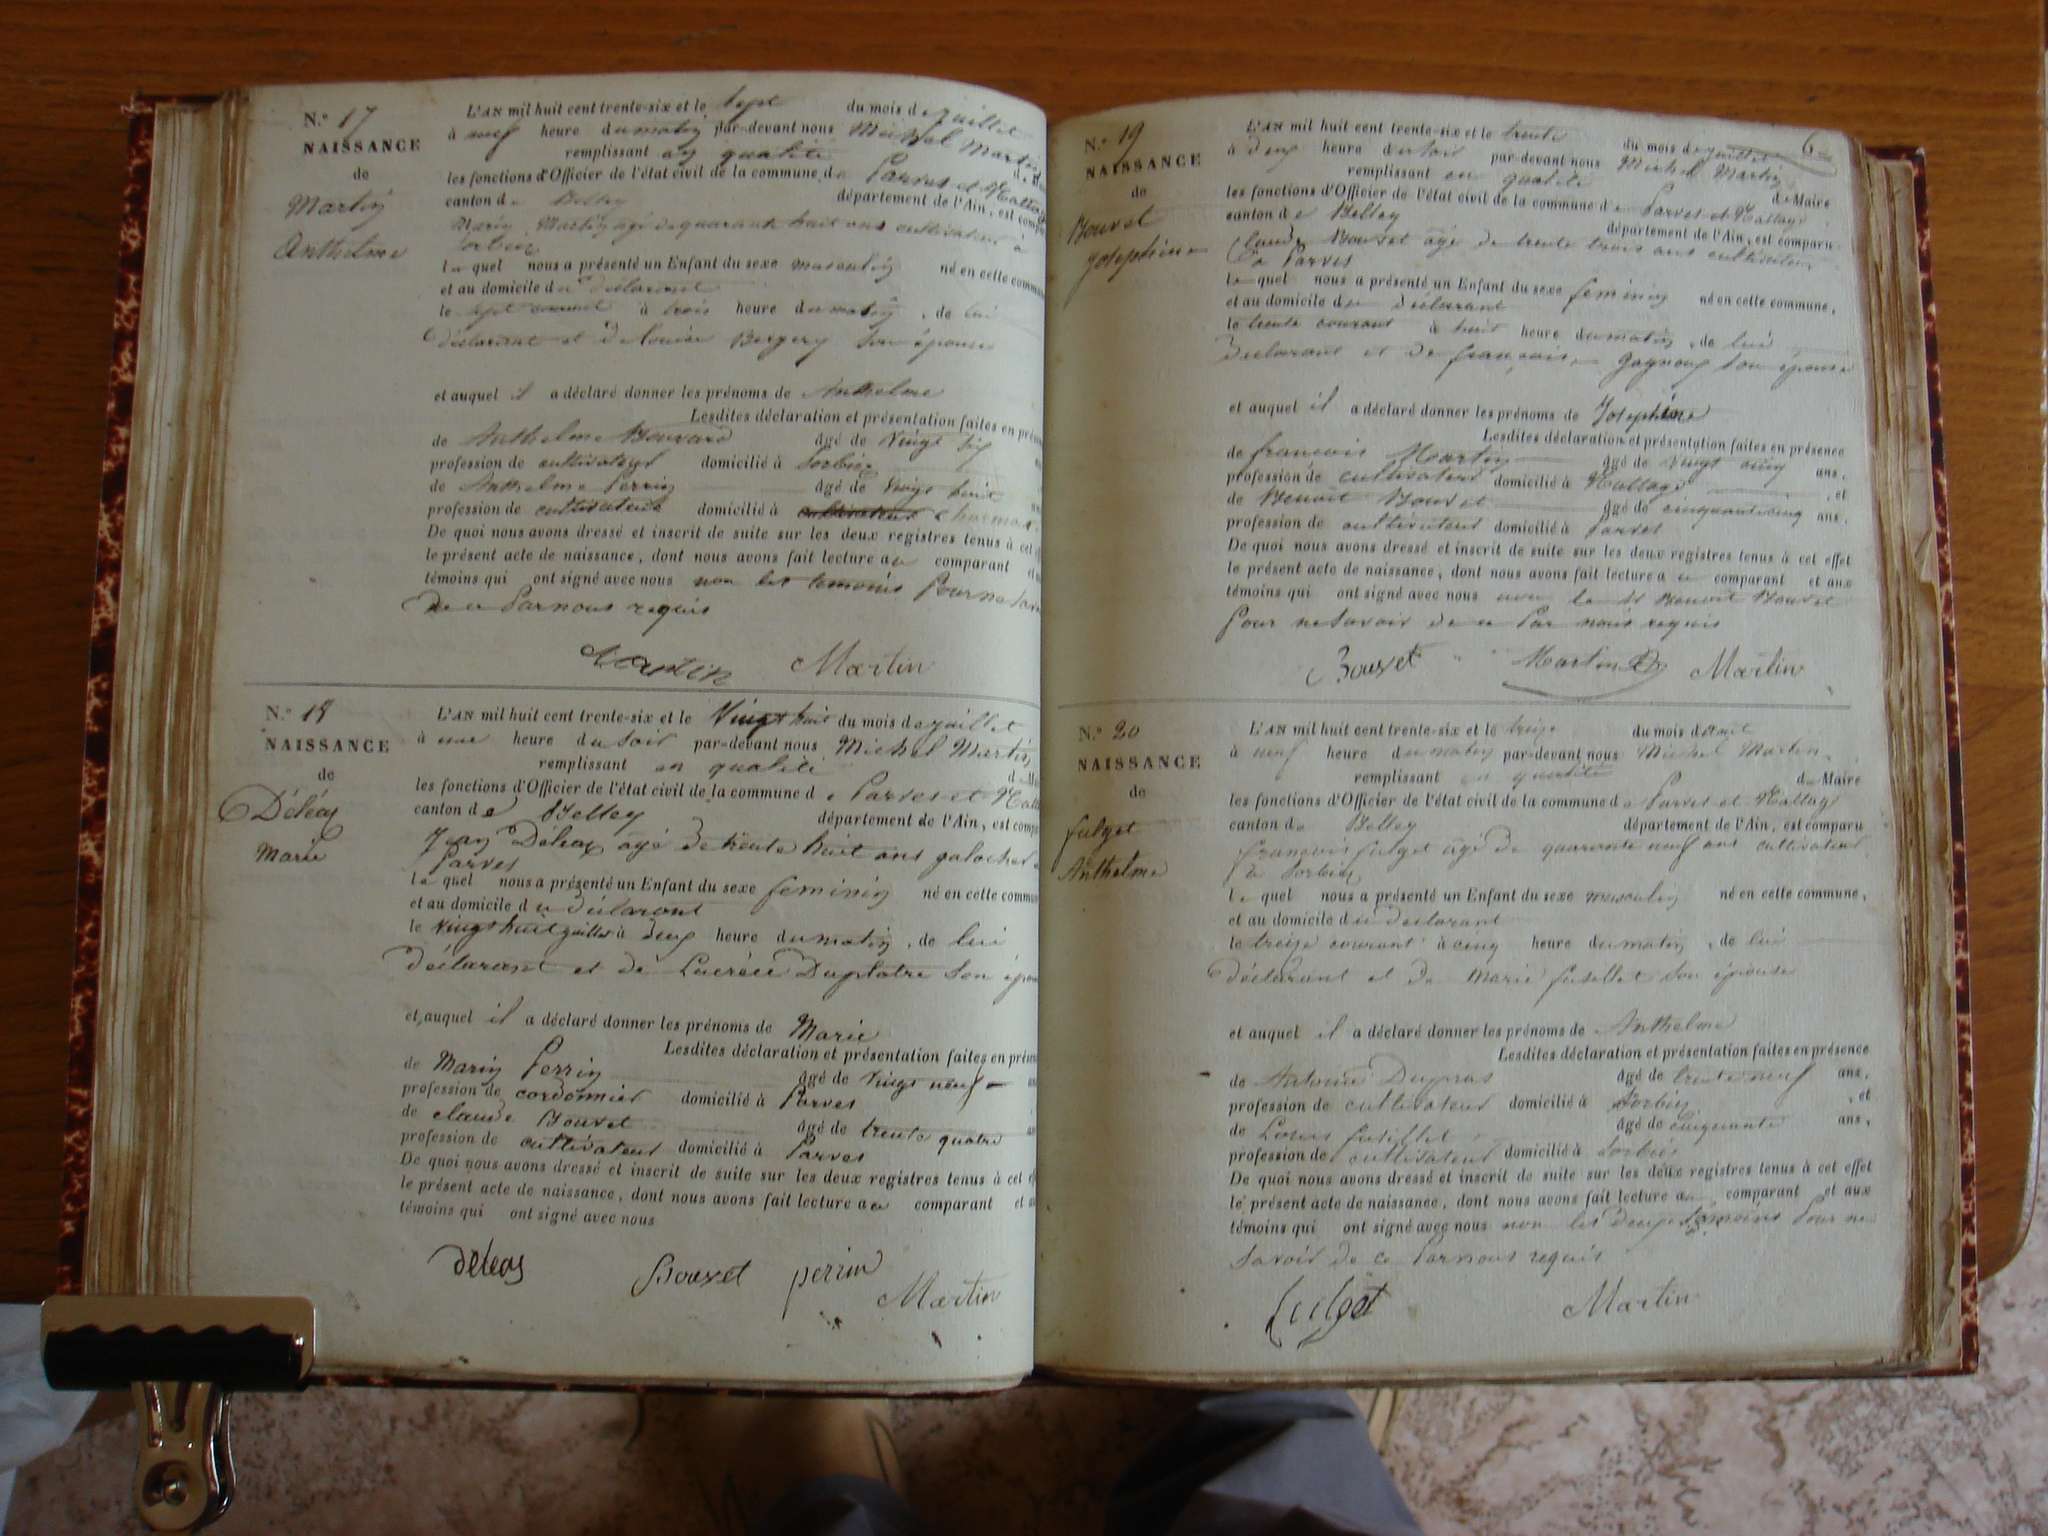 N.° 17
NAISSANCE
de
Martin
Anthelme
L'AN mil huit cent trente-six et le sept du mois de juillet
à neuf heure du matin par-devant nous Michel Martin
remplissant en qualité
les fonctions d'Officier de l'état civil de la commune de Parves et
canton de Belley département de l'Ain, est
Marin Martin agé de quarante huit ans cultivateur à
Sorbier
le quel nous a présenté un Enfant du sexe masculin né en cette
et au domicile du déclarant
le sept courant à trois heure du matin, de lui
déclarant et de Louise Bergery son épouse
et auquel il a déclaré donner les prénoms de Anthelme
Lesdites déclaration et présentation faites en
de Anthelme Bouvard âgé de vingt six
profession de cultivateur domicilié à Sorbier
de Anthelme Perrin âgé de vingt huit
profession de cultivateur domicilié à
De quoi nous avons dressé et inscrit de suite sur les deux registres tenus à cet
le présent acte de naissance, dont nous avons fait lecture au comparant
témoins qui ont signé avec nous non les temoins Pour ne
de ce Par nous requis
Martin Martin
N.° 18
NAISSANCE
de
Déléas
Marie
L'AN mil huit cent trente-six et le Vingt huit du mois de juillet
à une heure du soir par-devant nous Michel Martin
remplissant en qualité
les fonctions d'Officier de l'état civil de la commune de Parves et
canton de Belley département de l'Ain, est
Jean Déléas agé de trente huit ans galocher
Parves
le quel nous a présenté un Enfant du sexe feminin né en cette
et au domicile du déclarant
le vingt huit juillet à deux heure du matin, de lui
déclarant et de Lucrèce Duplatre son
et auquel il a déclaré donner les prénoms de Marie
Lesdites déclaration et présentation faites en
de Marin Perrin âgé de vingt neuf
profession de cordonnier domicilié à Parves
de claude Bouvet âgé de trente quatre
profession de cultivateur domicilié à Parves
De quoi nous avons dressé et inscrit de suite sur les deux registres tenus à cet
le présent acte de naissance, dont nous avons fait lecture au comparant
témoins qui ont signé avec nous
Déléas Bouvet perrin
Martin
6
N.° 19
NAISSANCE
de
Bouvet
Josephine
L'AN mil huit cent trente-six et le trente du mois de juillet
à deux heure du soir par-devant nous Michel Martin
remplissant en qualité de Maire
les fonctions d'Officier de l'état civil de la commune de Parves et Nattage
canton de Belley département de l'Ain, est comparu
Claude Bouvet âgé de trente trois ans cultivateur
à Parves
le quel nous a présenté un Enfant du sexe feminin né en cette commune,
et au domicile du déclarant
le trente courant à huit heure du matin, de lui
déclarant et de françoise son épouse
et auquel il a déclaré donner les prénoms de Josephine
Lesdites déclaration et présentation faites en présence
de francois Martin âgé de vingt cinq ans,
profession de cultivateur domicilié à Nattage, et
de Benoit Bouvet âgé de cinquante cinq ans,
profession de cultivateur domicilié à Parves
De quoi nous avons dressé et inscrit de suite sur les deux registres tenus à cet effet
le présent acte de naissance, dont nous avons fait lecture au comparant et aux
témoins qui ont signé avec nous non le dit Benoit Bouvet
Pour ne savoir de ce Par nous requis
Bouvet Martin Martin
N.° 20
NAISSANCE
de
fulget
Anthelme
L'AN mil huit cent trente-six et le treize du mois d'aout
à neuf heure du matin par-devant nous Michel Martin
remplissant en qualité de Maire
les fonctions d'Officier de l'état civil de la commune de Parves et Nattage
canton de Belley département de l'Ain, est comparu
françois fulget âgé de quarante neuf ans cultivateur
à Sorbier
le quel nous a présenté un Enfant du sexe masculin né en cette commune,
et au domicile du déclarant
le treize courant à cinq heure du matin, de lui
déclarant et de Marie fusillet son épouse
et auquel il a déclaré donner les prénoms de Anthelme
Lesdites déclaration et présentation faites en présence
de Antoine Dupras âgé de trente neuf ans,
profession de cultivateur domicilié à Sorbier, et
de Louis fusillet âgé de cinquante ans,
profession de cultivateur domicilié à Sorbier
De quoi nous avons dressé et inscrit de suite sur les deux registres tenus à cet effet
le présent acte de naissance, dont nous avons fait lecture au comparant et aux
témoins qui ont signé avec nous non les deux temoins Pour ne
savoir de ce Par nous requis
fulget Martin